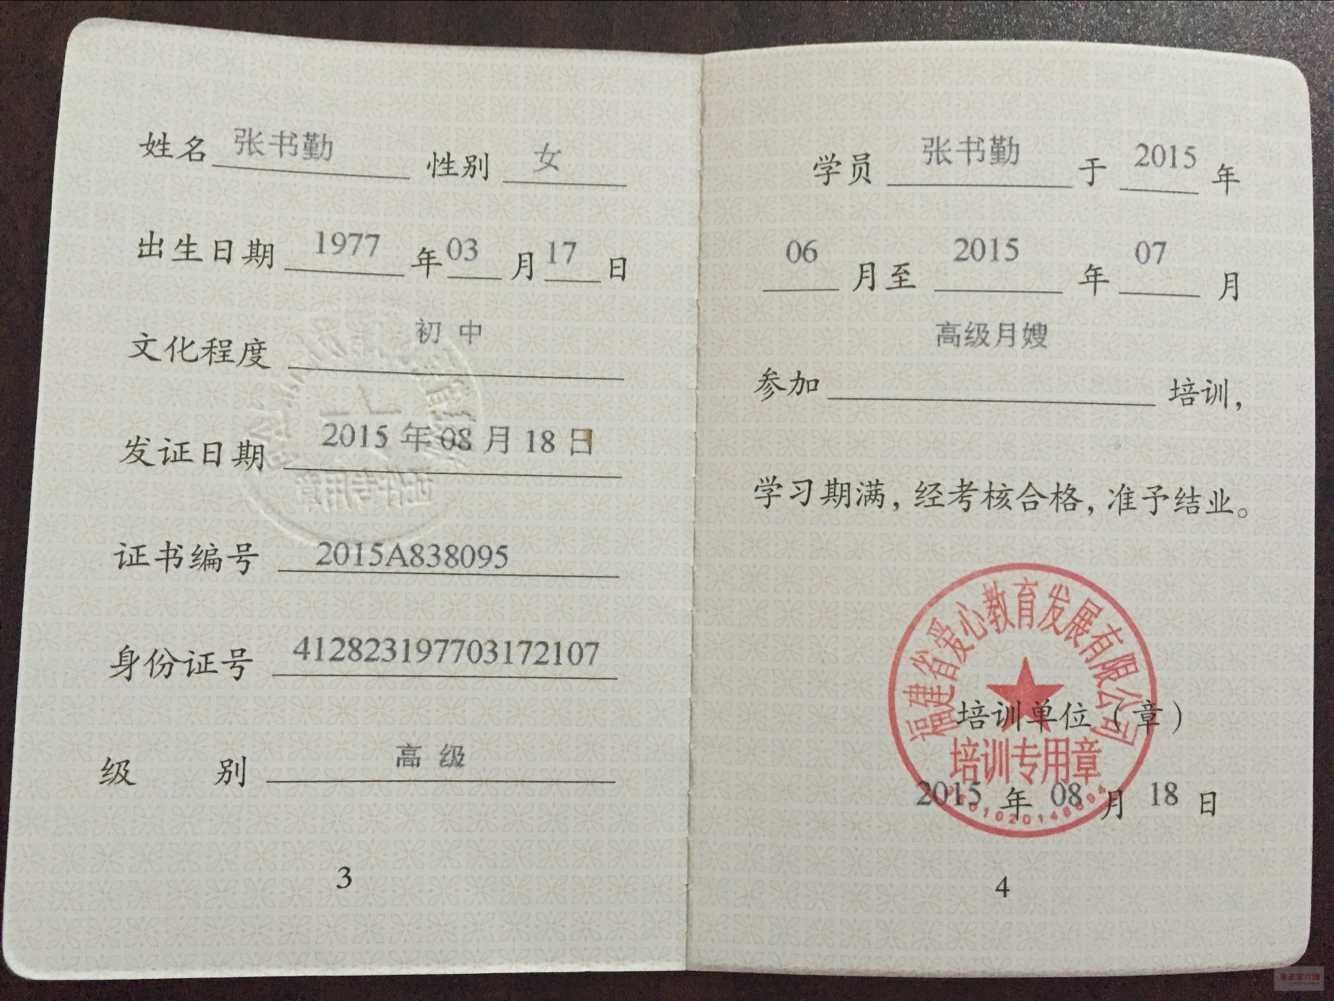 姓名 张书勤 性别 女
出生日期 1977 年 03 月 17 日
文化程度 初中
发证日期 2015 年 08 月 18 日
证书编号 2015A838095
身份证号 412823197703172107
级别 高级
3
学员 张书勤 于 2015 年
06 月至 2015 年 07 月
参加 高级月嫂 培训，
学习期满，经考核合格，准予结业。
福建省爱心教育发展有限公司
培训单位（章）
培训专用章
2015 年 08 月 18 日
4